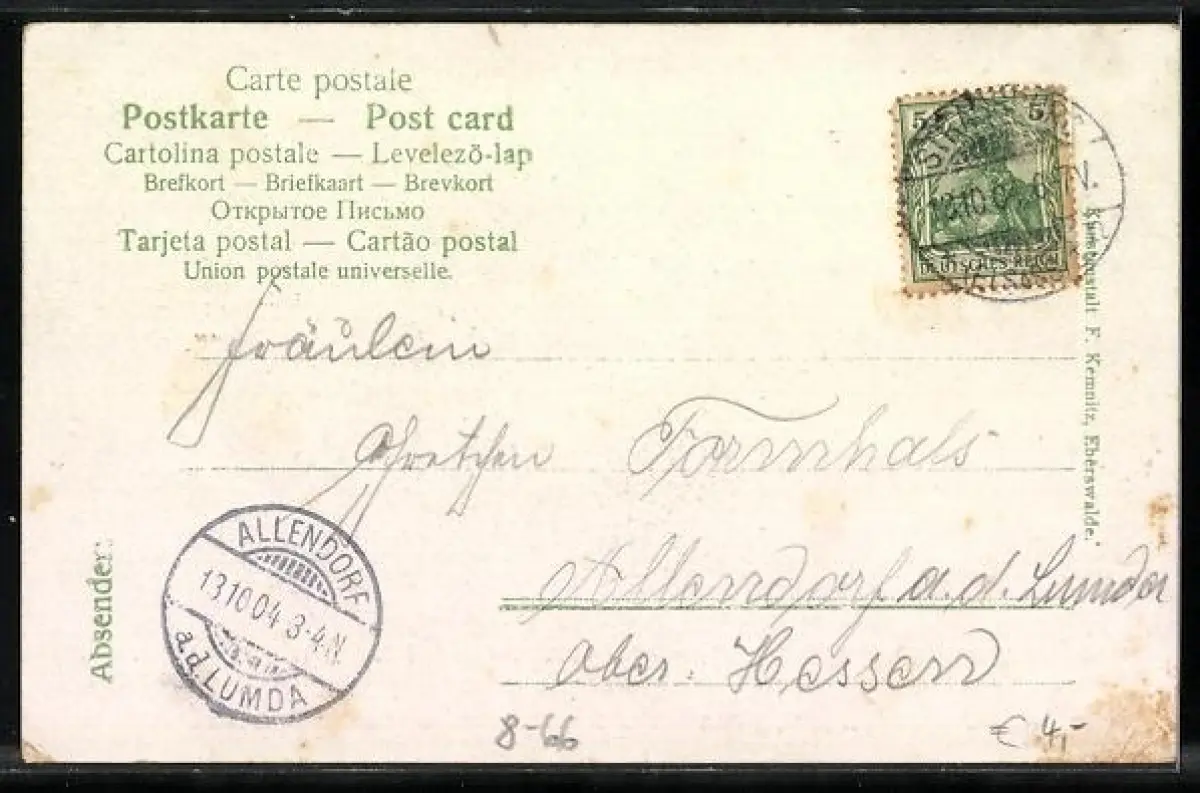 Carte postale
Postkarte — Post card
Cartolina postale — Levelező-lap
Brefkort — Briefkaart — Brevkort
Открытое Письмо
Tarjeta postal — Cartão postal
Union postale universelle.
5 5
DEUTSCHES REICH
Kunstanstalt F. Kemnitz, Eberswalde.
Fräulein
Gretchen Formhals
Allendorf a.d. Lumda
Ober. Hessen
Absender:
ALLENDORF
13.10.04 3-4.N.
a.d. LUMDA
8-66
€ 4,-